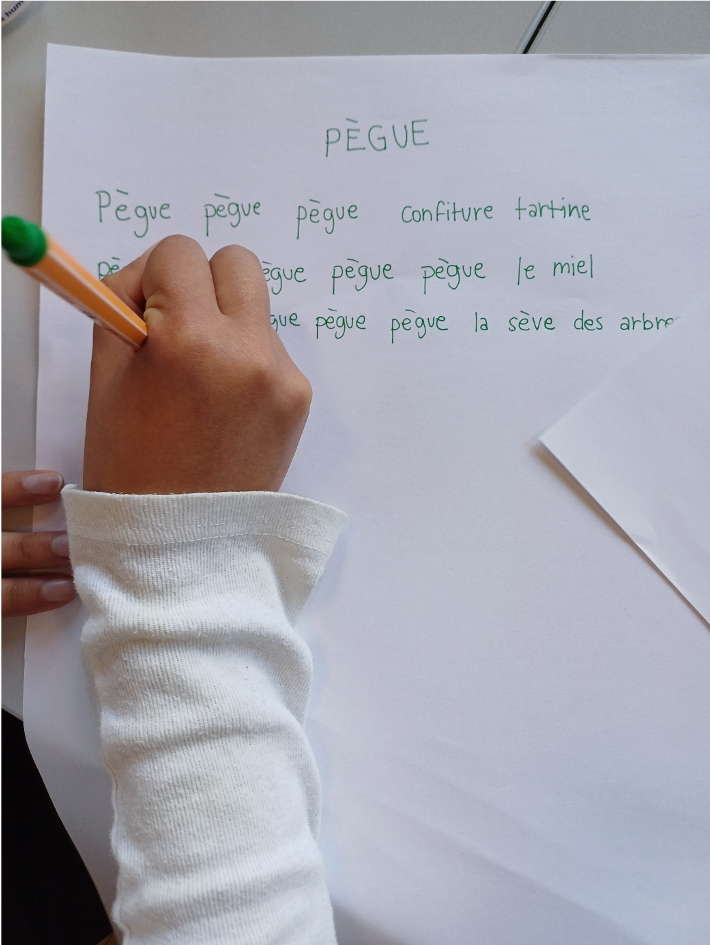 PÈGUE
Pègue pègue pègue confiture tartine
pègue pègue le miel
pègue pègue la sève des